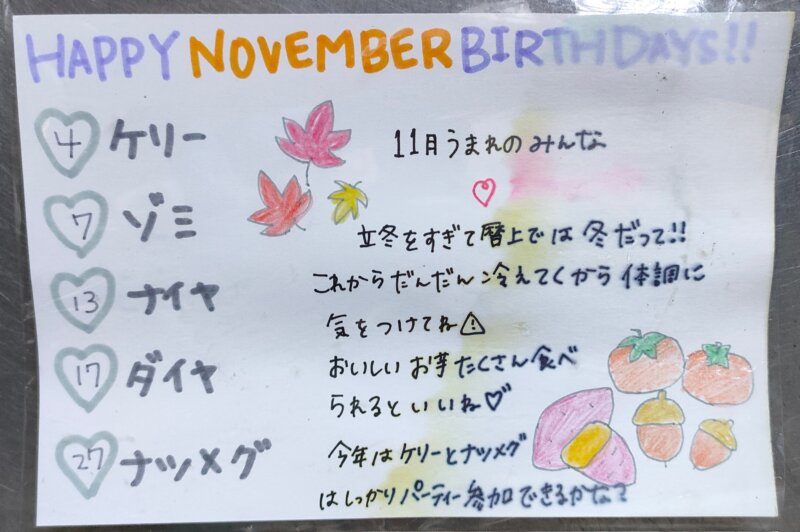 HAPPY NOVEMBER BIRTHDAYS!!
4 ケリー
7 ゾミ
13 ナイヤ
17 ダイヤ
27 ナツメグ
11月うまれのみんな
立冬をすぎて暦上では冬だって!!
これからだんだん冷えてくから体調に
気をつけてね⚠
おいしいお芋たくさん食べ
られるといいね♡
今年はケリーとナツメグ
はしっかりパーティー参加できるかな?